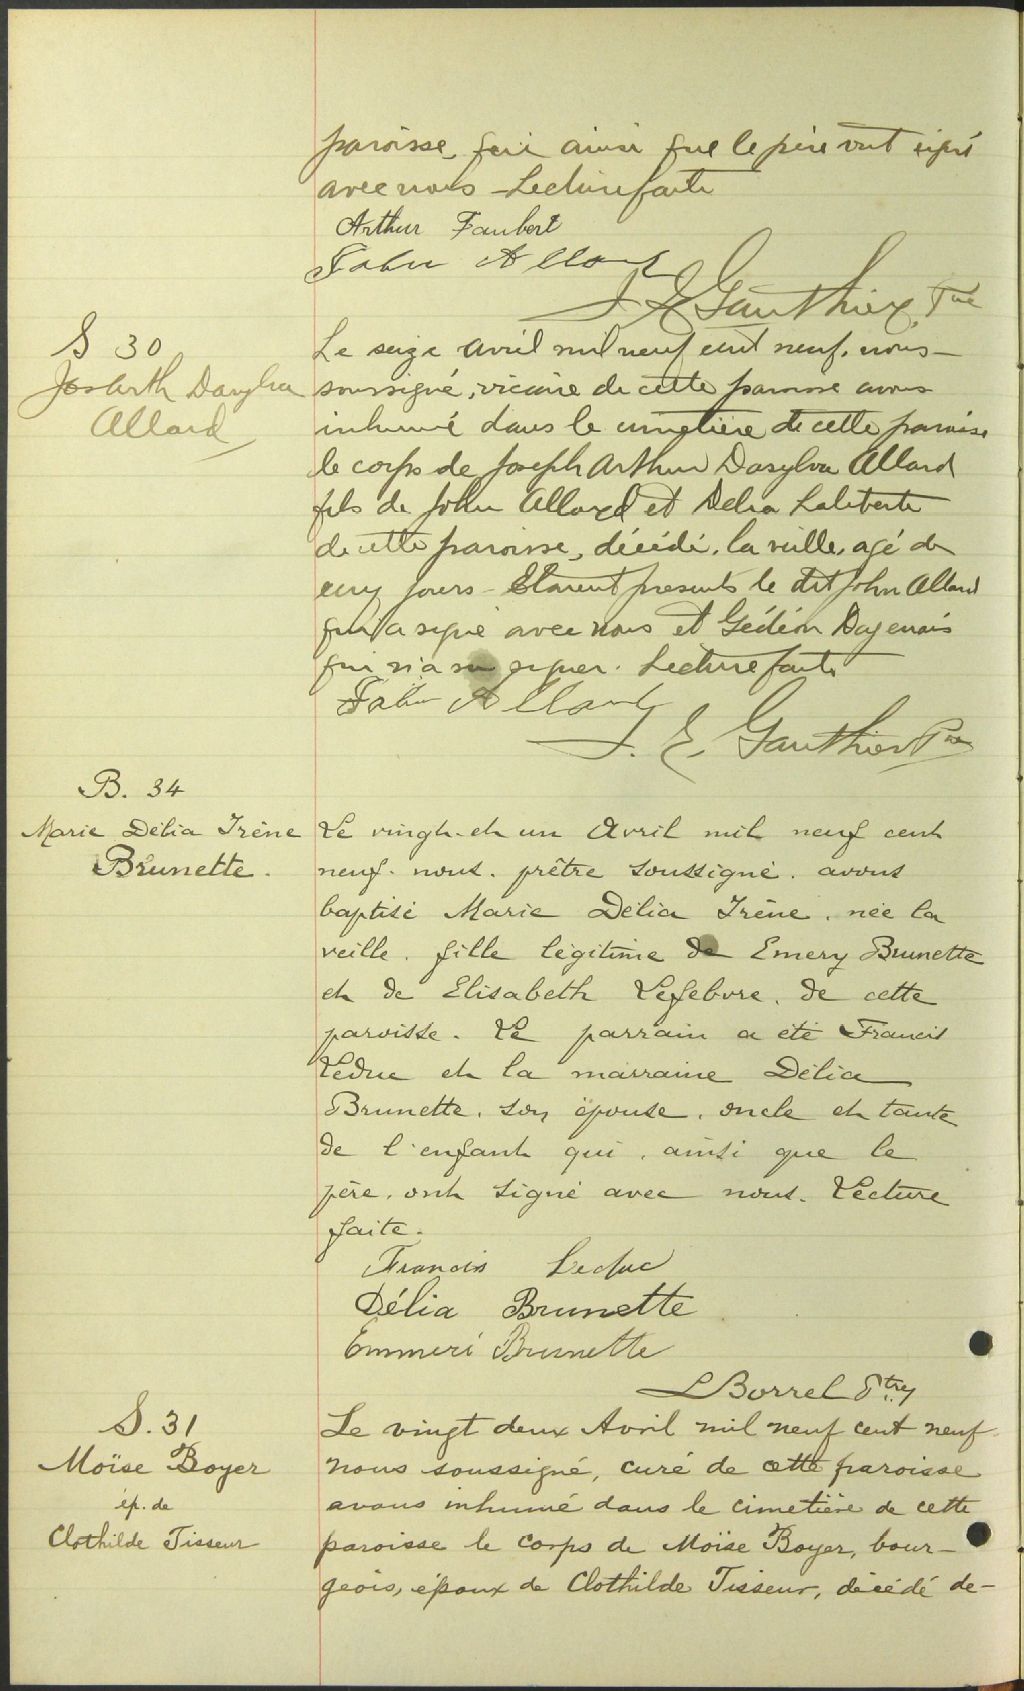 paroisse, qui ainsi que le père ont signé
avec nous - Lecture faite
Arthur Faubert
John Allard
J. E. Gauthier, Ptre
S 30
Jos Arth Dasylva
Allard
Le seize avril mil neuf cent neuf, nous
soussigné, vicaire de cette paroisse avons
inhumé dans le cimetière de cette paroisse
le corps de Joseph Arthur Dasylva Allard
fils de John Allard et Delia Laliberté
de cette paroisse, décédé, la veille, agé de
cinq jours - Etaient présents le dit John Allard
qui a signé avec nous et Gédéon Dagenais
qui n'a su signer. Lecture faite
John Allard
J. E. Gauthier Ptre
B. 34
Marie Délia Irène
Brunette.
Le vingt-et un Avril mil neuf cent
neuf. nous. prêtre soussigné. avons
baptisé Marie Délia Irène, née la
veille. fille légitime de Emery Brunette
et de Elisabeth Lefebvre, de cette
paroisse. Le parrain a été Francis
Leduc et la marraine Délia
Brunette, son épouse, oncle et tante
de l'enfant qui, ainsi que le
père, ont signé avec nous. Lecture
faite.
Francis Leduc
Délia Brunette
Emmeri Brunette
L Borrel Ptre
S. 31
Moïse Boyer
ép. de
Clothilde Tisseur
Le vingt deux Avril mil neuf cent neuf
nous soussigné, curé de cette paroisse
avons inhumé dans le cimetière de cette
paroisse le corps de Moïse Boyer, bour-
geois, époux de Clothilde Tisseur, décédé de-